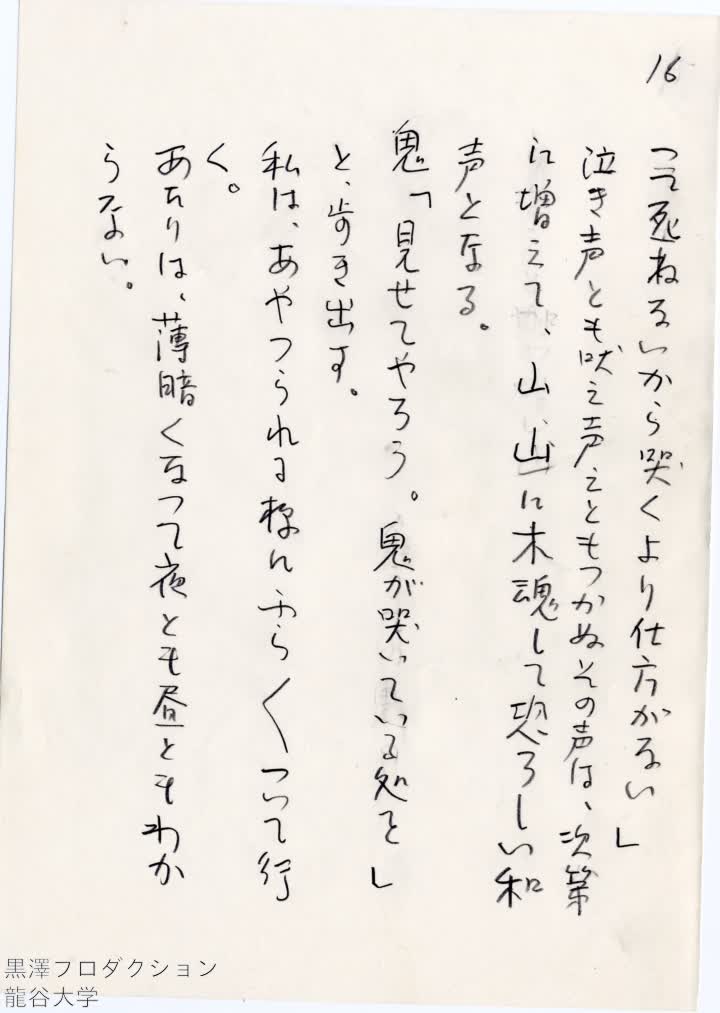 16
つて死ねないから哭くより仕方がない」
泣き声とも吠え声ともつかぬその声は、次第
に増えて、山、山に木魂して恐ろしい和
声となる。
鬼「見せてやろう。鬼が哭いている処を」
と、歩き出す。
私は、あやつられる様にふら〱ついて行
く。
あたりは、薄暗くなつて夜とも昼ともわか
らない。
黒澤プロダクション
龍谷大学